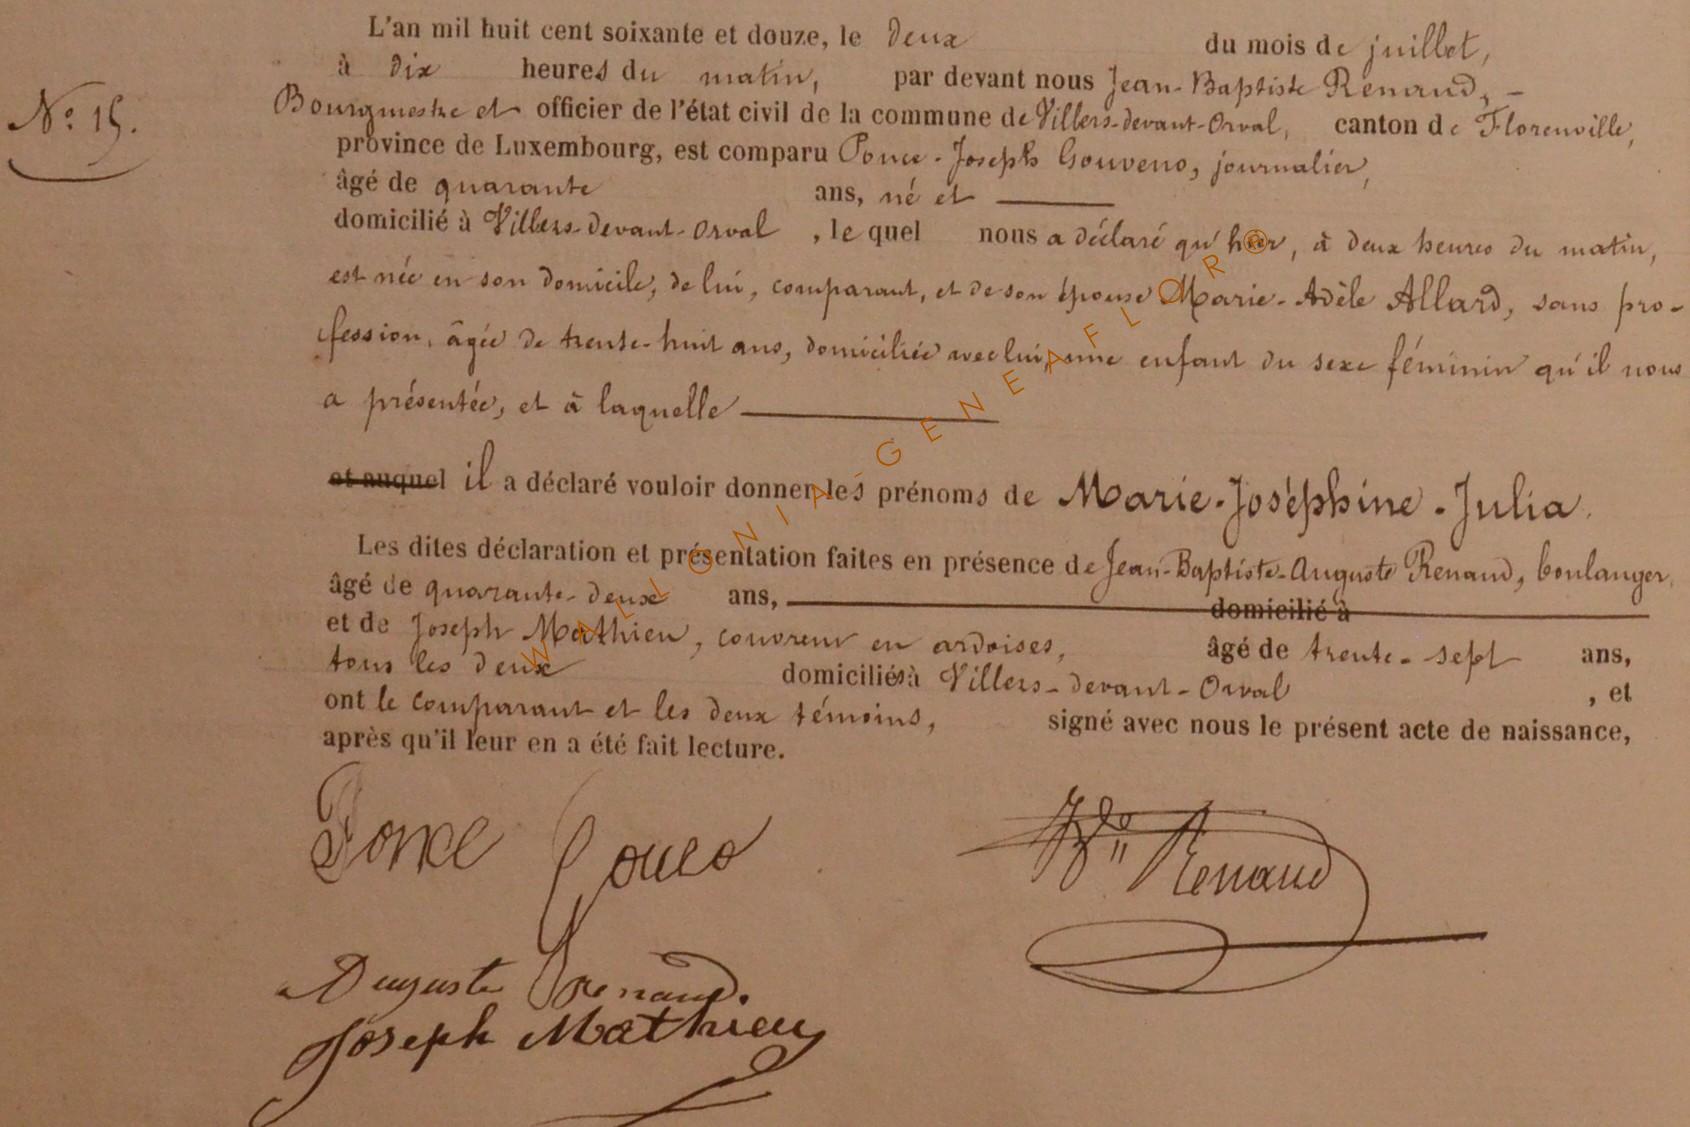 L'an mil huit cent soixante et douze, le deux du mois de juillet,
à dix heures du matin, par devant nous Jean-Baptiste Renaud, -
N.o 15.
Bourgmestre et officier de l'état civil de la commune de Villers-devant-Orval, canton de Florenville,
province de Luxembourg, est comparu Ponce-Joseph Gouveno, journalier,
âgé de quarante ans, né et
domicilié à Villers-devant-Orval, le quel nous a déclaré qu'hier, à deux heures du matin,
est née en son domicile, de lui, comparant, et de son épouse Marie-Adèle Allard, sans pro-
fession, âgée de trente-huit ans, domiciliée avec lui, une enfant du sexe féminin qu'il nous
a présentée, et à laquelle
et auquel il a déclaré vouloir donner les prénoms de Marie-Joséphine-Julia.
Les dites déclaration et présentation faites en présence de Jean-Baptiste-Auguste Renaud, boulanger,
âgé de quarante-deux ans, domicilié à
et de Joseph Mathieu, couvreur en ardoises, âgé de trente-sept ans,
tous les deux domiciliés à Villers-devant-Orval, et
ont le comparant et les deux témoins, signé avec nous le présent acte de naissance,
après qu'il leur en a été fait lecture.
Ponce
Renaud
Auguste Renaud.
Joseph Mathieu
WALLONIA-GENEAFLOR®